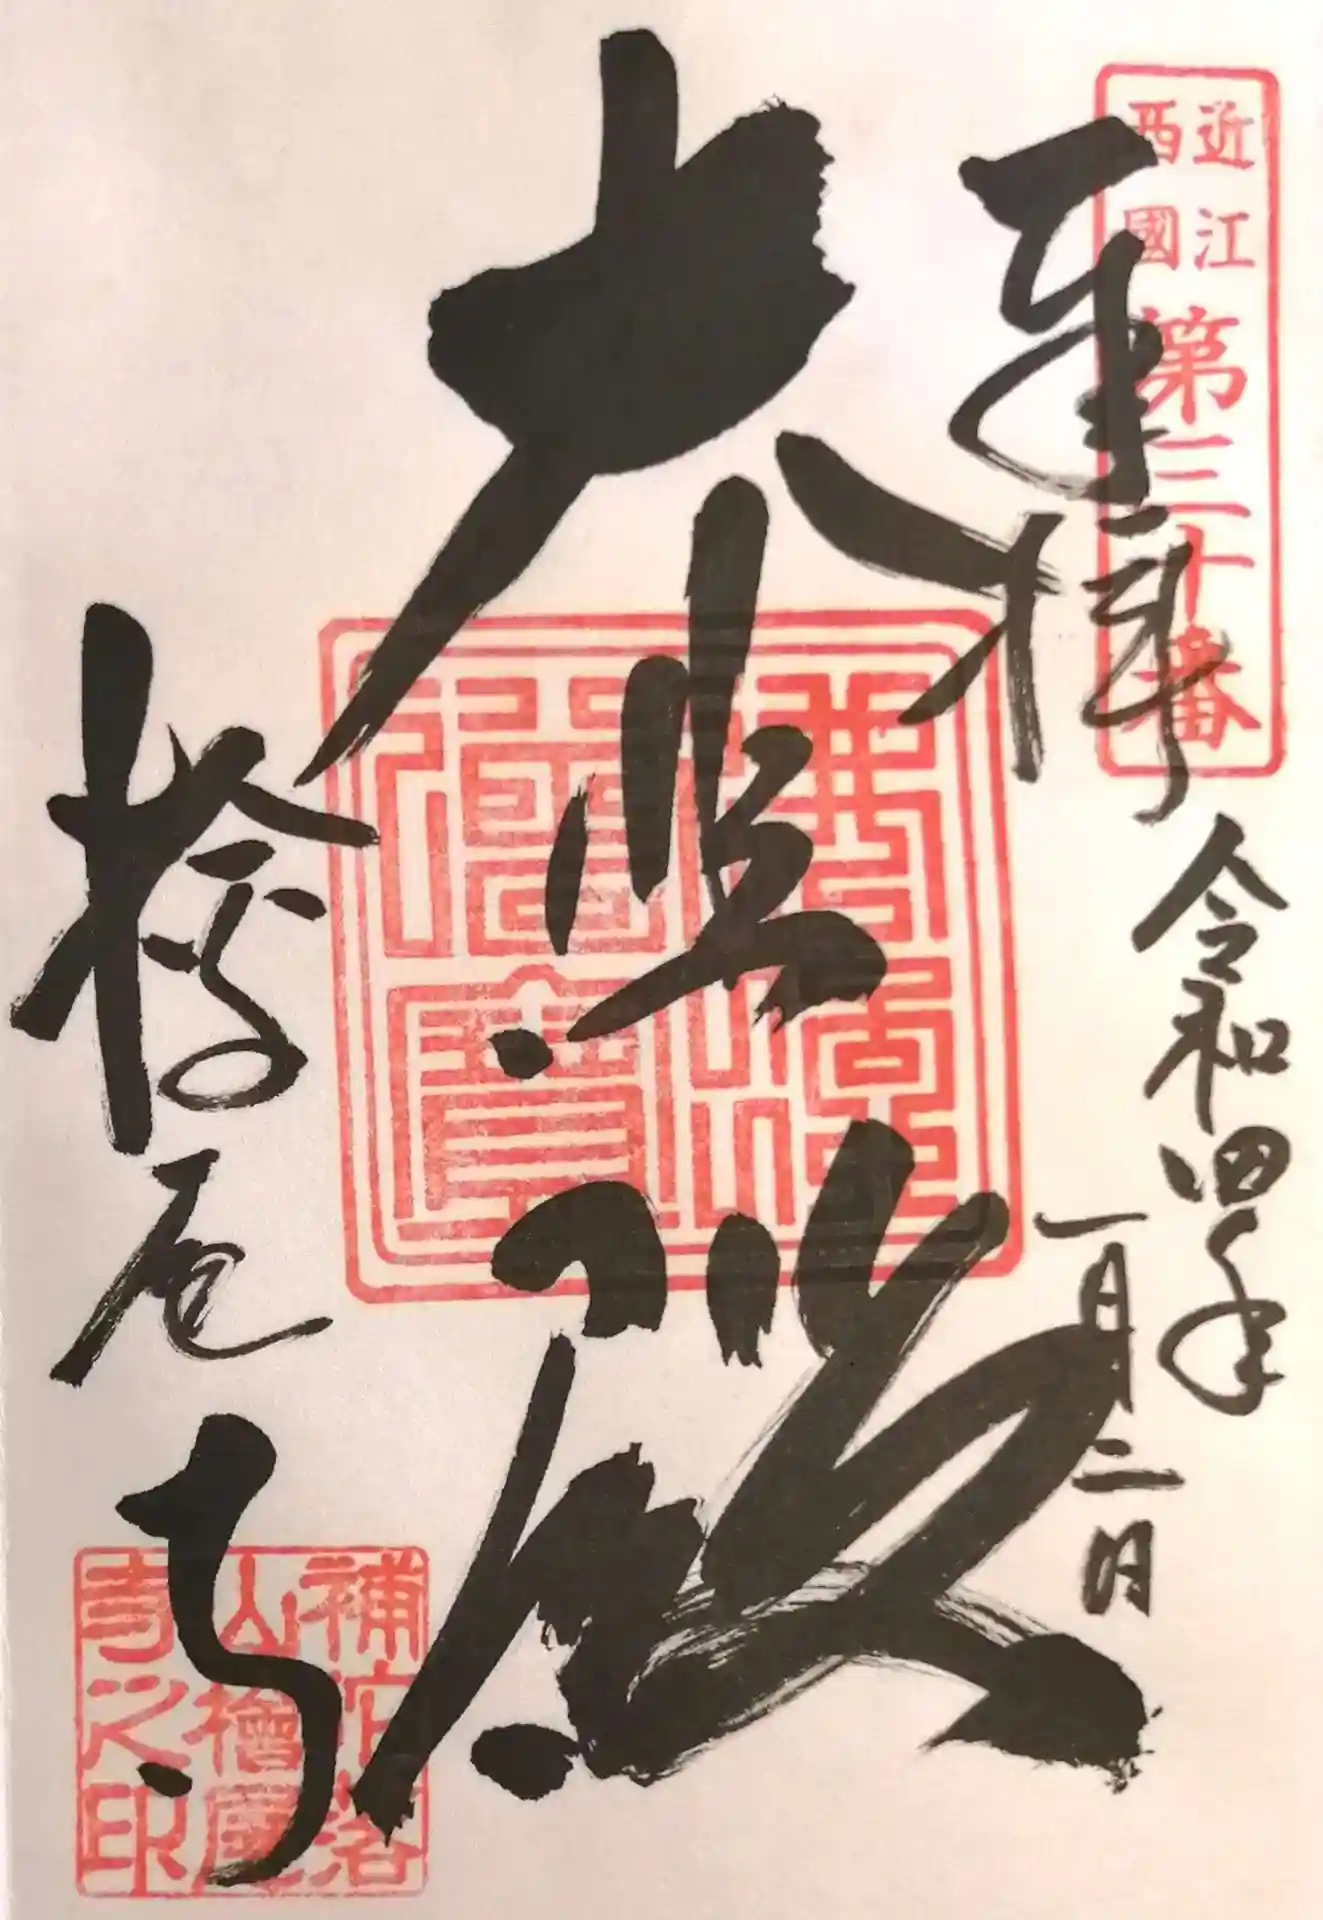 近江
西國
第三十番
奉拝
令和四年
一月二日
大悲殿
佛法僧寶
檜尾寺
補陀落
山檜尾
寺之印